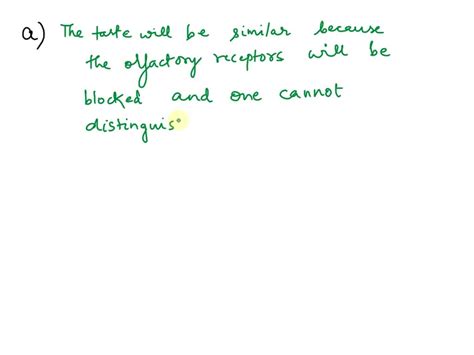 a) The taste will be similar because
the olfactory receptors will be
blocked and one cannot
distinguis